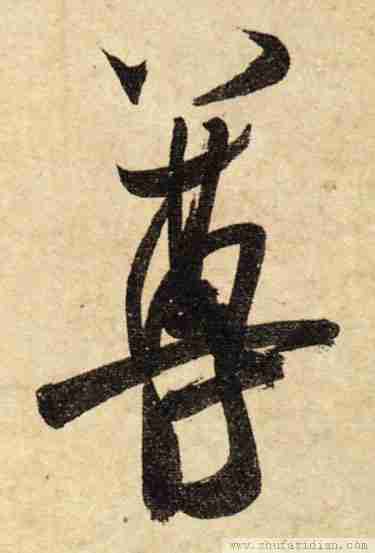 尊
www.shufazidian.com